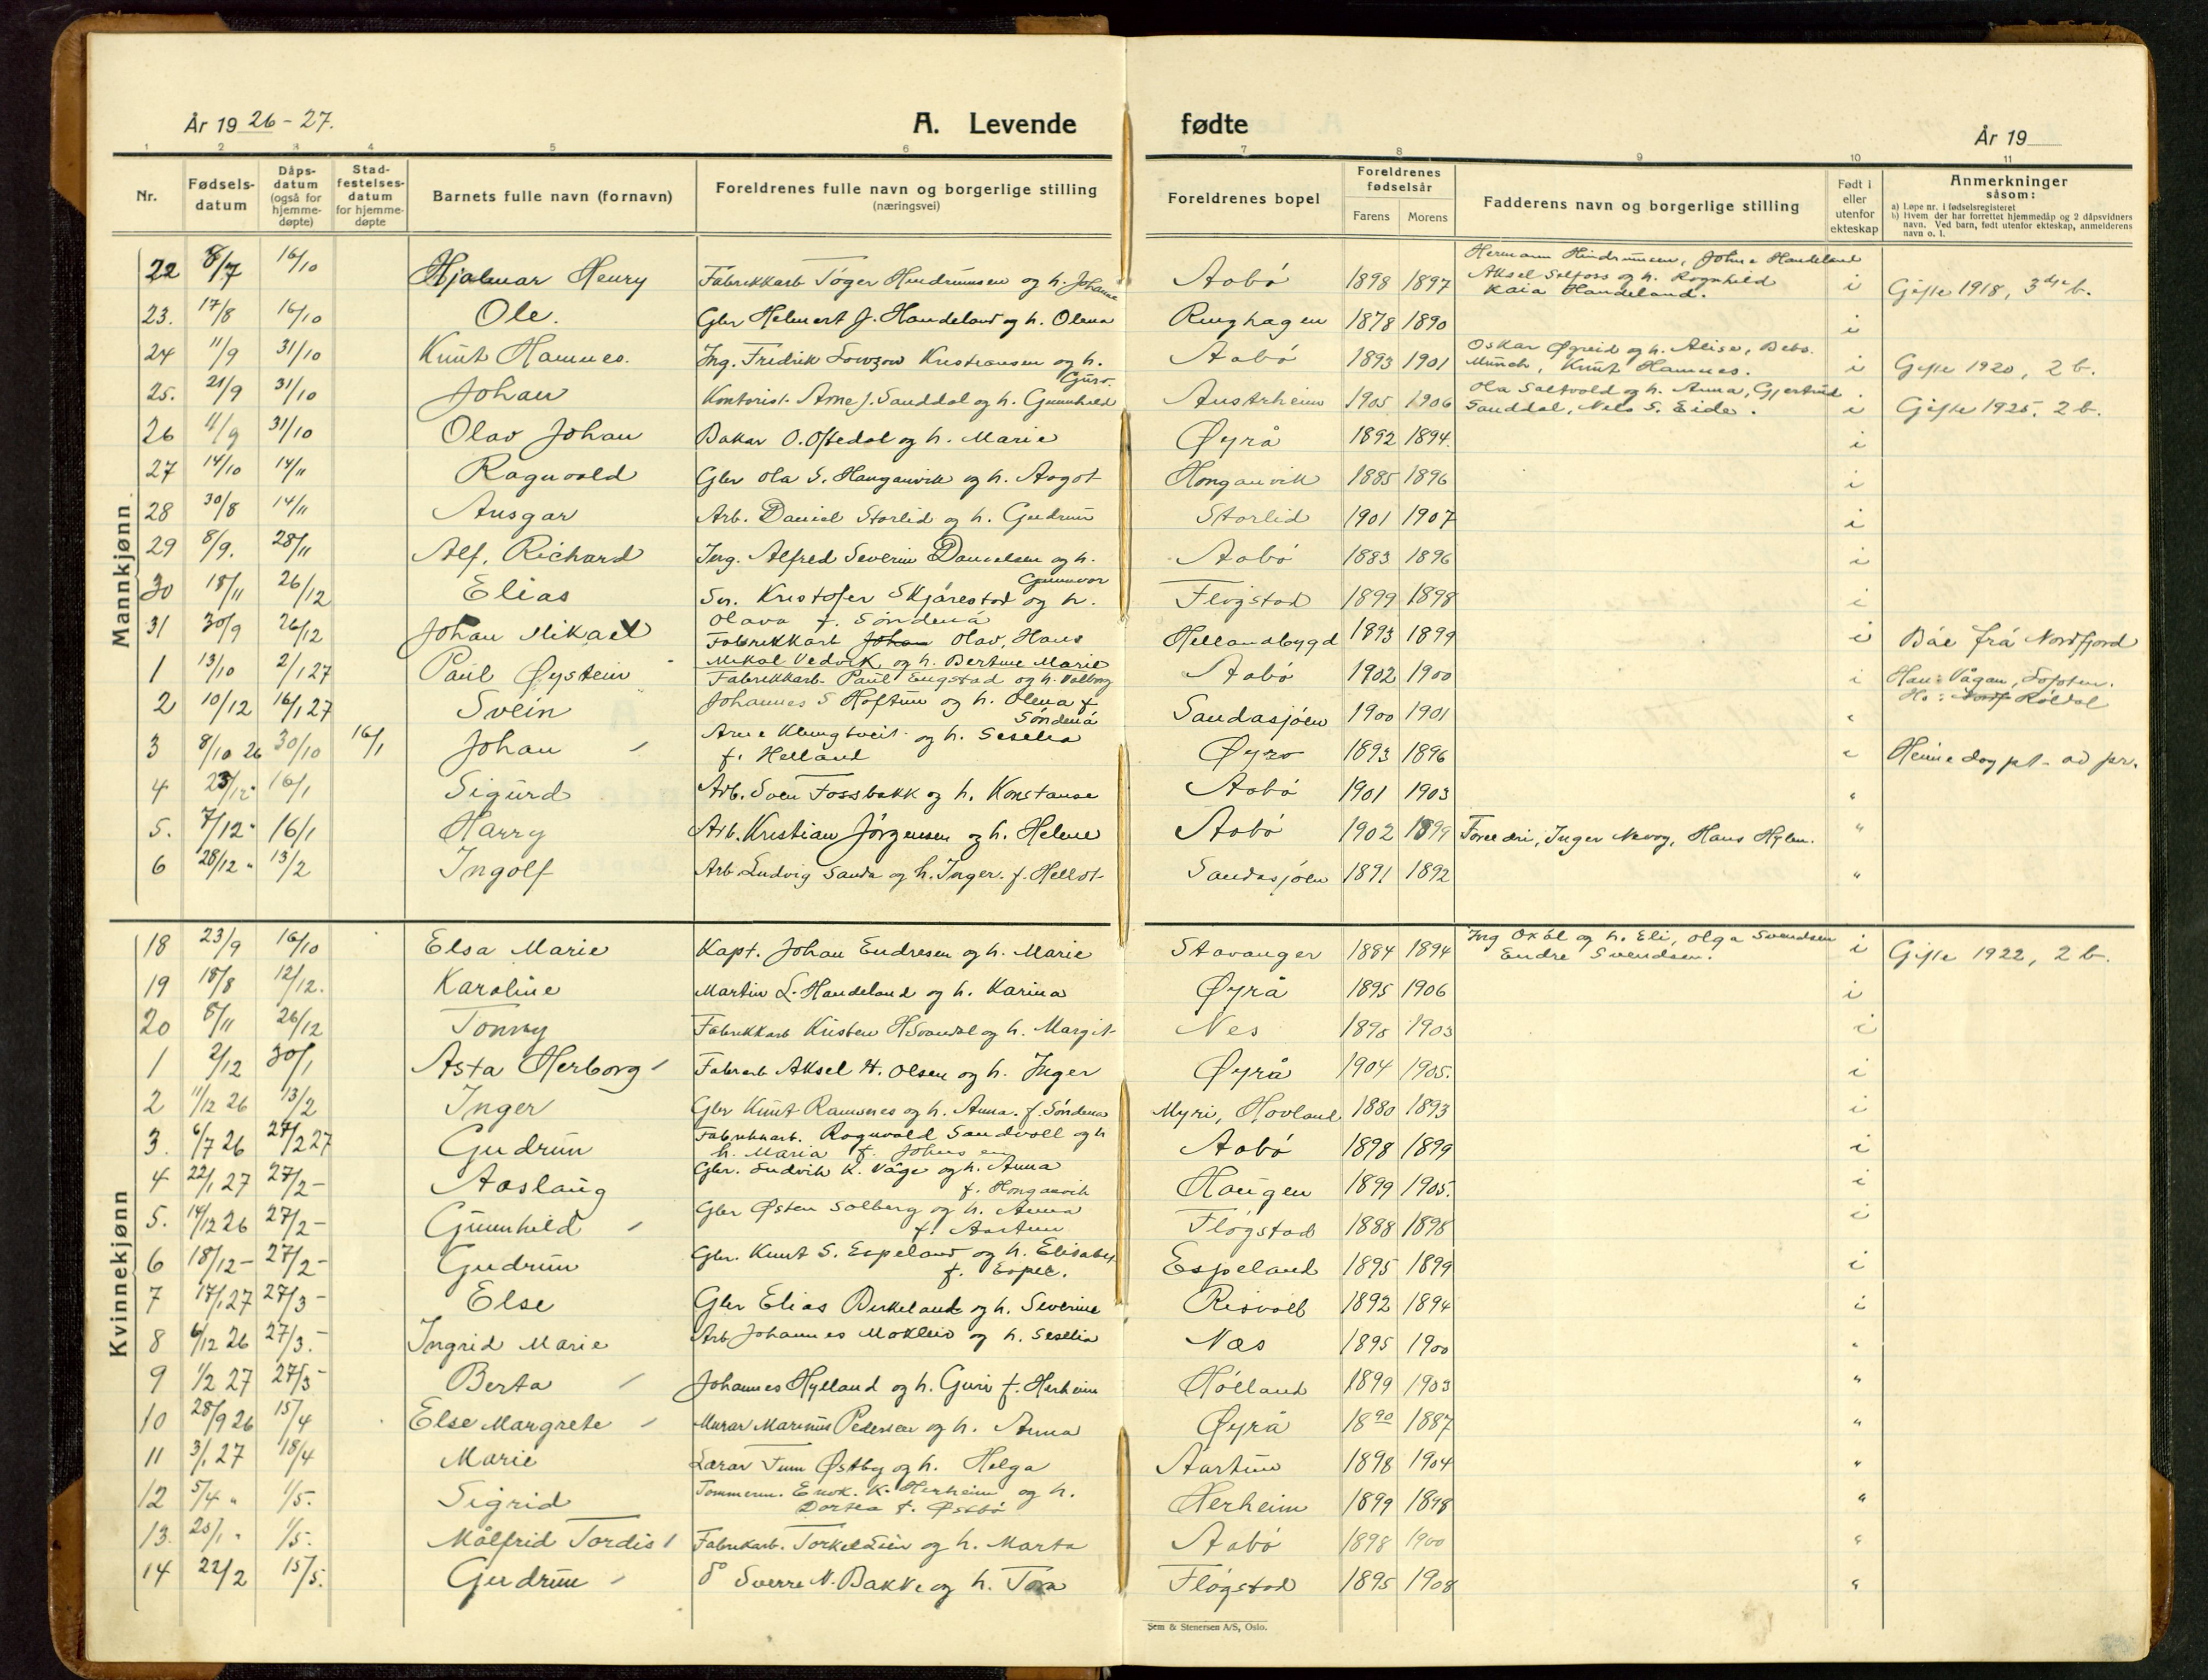 År 19 26-27.
A. Levende fødte
År 19
1 2 3 4 5 6 7 8 9 10 11
Nr. Fødsels-datum Dåps-datum (også for hjemme-døpte) Stad-festelses-datum for hjemme-døpte Barnets fulle navn (fornavn) Foreldrenes fulle navn og borgerlige stilling (næringsvei) Foreldrenes bopel Foreldrenes fødselsår Farens Morens Fadderens navn og borgerlige stilling Født i eller utenfor ekteskap Anmerkninger såsom:
a) Løpe nr. i fødselsregisteret
b) Hvem der har forrettet hjemmedåp og 2 dåpsvidners navn. Ved barn, født utenfor ekteskap, anmelderens navn o. l.
Mannkjønn
22 8/7 16/10 Hjalmar Henry Fabrikkarb Tøger Hindrumsen og h. Johanne Aabö 1898 1897 Hermann Hindrumsen, Johne Handeland Aksel Selfoss og h. Ragnhild Kaia Handeland. i Gifte 1918, 3dje b.
23. 17/8 16/10 Ole. Gbr Helmert J. Handeland og h. Olena Ringhagen 1878 1890 i
24 11/9 31/10 Knut Hamnes. Ing. Fredrik Lowzow Kristiansen og h. Guro. Aabö 1893 1901 Oskar Øgreid og h. Alise, Debo. Munch, Knut Hamnes. i Gifte 1920, 2 b.
25. 21/9 31/10 Johan Kontorist Arne J. Sanddal og h. Gunnhild Austrheim 1905 1906 Ola Saltvold og h. Anna, Gjertrud Sanddal, Nels S. Eide. i Gifte 1925, 2 b.
26 11/9 31/10 Olav Johan Bakar O. Oftedal og h. Marie Øyrå 1892 1894. i
27 14/10 14/11 Ragnvald Gbr Ola S. Hanganvik og h. Aagot Honganvik 1885 1896 i
28 30/8 14/11 Ansgar Arb. Daniel Storlid og h. Gudrun Storlid 1901 1907 i
29 8/9. 28/11 Alf. Richard Ing. Alfred Severin Danielsen og h. Gunnvor Aabö 1883 1896 i
30 18/11 26/12 Elias Sn. Kristofer Skjørestad og h. Olava f. Söndenå Flógstad 1899 1898 i
31 30/9 26/12 Johan Mikael Fabrikkarb Johan Olav, Hans Mikal Vedvik og h. Bertine Marie Hellandbygd 1893 1899 i Båe frå Nordfjord
1 13/10 2/1 27 Paul Øystein Fabrikkarb. Paul Engstad og h. Valborg Aabö 1902 1900 i Han: Vågan, Lofoten. Ho: Röldal
2 10/12 16/1 27 Svein Johannes S Hoftun og h. Olena f Söndenå Sandasjöen 1900 1901 "
3 8/10 26 30/10 16/1 Johan Arne Klungtveit og h. Seselia f. Helland Øyro 1893 1896 " Heimedøypt - ad pr.
4 23/12 16/1 Sigurd Arb. Sven Fossbakk og h. Konstanse Aabö 1901 1903 "
5. 7/12 16/1 Harry Arb. Kristian Jörgensen og h. Helene Aabö 1902 1899 Foreldri, Inger Nevøy, Hans Hylen. "
6 28/12 " 13/2 Ingolf Arb Ludvig Sanda og h. Inger. f. Hellst Sandasjöen 1891 1892 "
Kvinnekjønn
18 23/9 16/10 Elsa Marie Kapt. Johan Endresen og h. Marie Stavanger 1884 1894 Ing Oxål og h. Eli, Olga Svendsen Endre Svendsen. i Gifte 1922, 2 b.
19 18/8 12/12. Karoline Martin L. Handeland og h. Karina Øyrå 1895 1906 i
20 8/11 26/12 Tonny Fabrikkarb Kristen H Svandal og h. Margit Nes 1898 1903 i
1 2/12 30/1 Asta Herborg Fabrarb Aksel H. Olsen og h. Inger Øyrå 1904 1905. i
2 11/12 26 13/2 Inger Gbr Knut Ramsnes og h. Anna. f. Söndena Myri, Hovland 1880 1893 i
3. 6/7 26 27/2 27 Gudrun Fabrikkarb. Ragnvald Sandvoll og h. Maria f. Johns en Aabö 1898 1899 i
4 22/1 27 27/2 - Aaslaug Gbr. Ludvik K. Våge og h. Anna f. Honganvik Haugen 1899 1905. i
5. 14/12 26 27/2 - Gunnhild Gbr Østen Solberg og h. Anna f. Aartun Flógstad 1888 1898 i
6 18/12 - 27/2 - Gudrun Gbr. Knut S. Espeland og h. Elisabet f. Espel. Espeland 1895 1899 i
7 17/1 27 27/3 - Else Gbr Elias Birkeland og h. Severine Risvoll 1892 1894 i
8 6/12 26 27/3. - Ingrid Marie Arb Johannes Mokleiv og h. Seselia Næs 1895 1900 "
9 1/2 27 27/3 - Berta Johannes Hylland og h. Guri f. Herheim Hölland 1899 1903 "
10 28/9 26 15/4 Else Margrete Murar Marinus Pedersen og h. Anna Øyrå 1890 1887 "
11 3/1 27 18/4 Marie Lærar Tum Østby og h. Helga Aartun 1898 1904 "
12 5/4 " 1/5. Sigrid Tommerm. Enok. K. Herheim og h. Dortea f. Østbö Herheim 1899 1898 "
13. 25/1 " 1/5. Målfrid Tordis Fabrikarb. Torkel Lien og h. Marta Aabö 1898 1900 "
14 22/2 15/5. Gudrun do Sverre N. Bakke og h. Tora Flógstad 1895 1908 "
Sem & Stenersen A/S, Oslo.